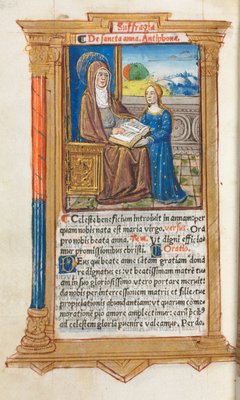 Suffragia
De sancta anna. Antiphona.
Celeste beneficium Introiuit in annam: per
quam nobis nata est maria virgo. versus. Ora
pro nobis beata anna. Resp. Ut digni efficia-
mur promissionibus christi. Oratio.
Deus qui beate anne tātam gratiam dona-
re dignatus es: vt beatissimam matrē tuā
am in suo gloriosissimo vtero portare meruit:
da nobis per intercessionem matris et filie: tue
propiciationis abundantiam: vt quarum come-
morationē pio amore amplectimur: earū p̄cib9
ad celestem gloriā peruenire valeamus. Per do.